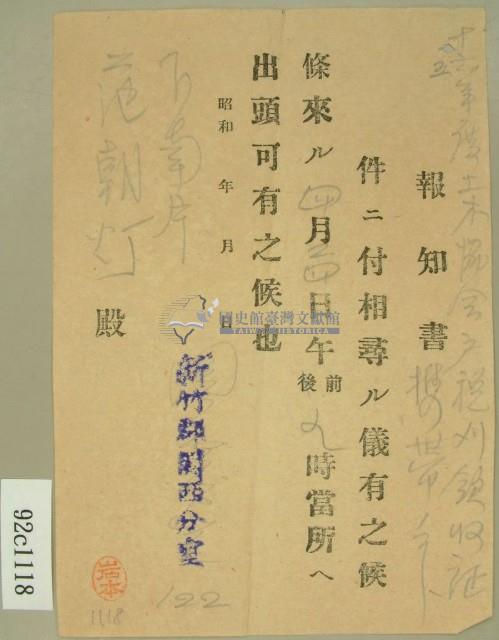 十六年度土木協会戸税刈領收証
五
携帯
報知書
件ニ付相尋ル儀有之候
條來ル四月四日午前後九時當所ヘ
出頭可有之候也
昭和 年 月 日
新竹郡關西分室
下南片
范朝灯 殿
岩本
122
1118
國史館臺灣文獻館
TAIWAN HISTORICA
92c1118